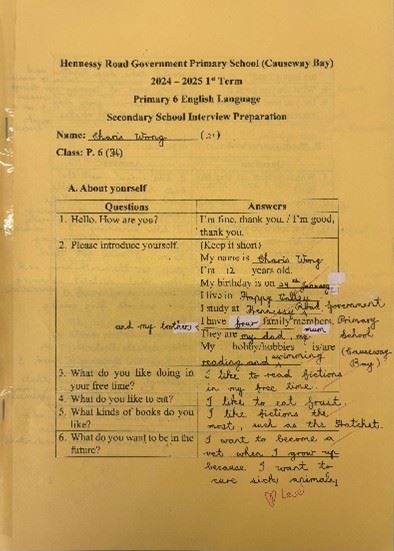 Hennessy Road Government Primary School (Causeway Bay)
2024 – 2025 1st Term
Primary 6 English Language
Secondary School Interview Preparation
Name: Charis Wong (21)
Class: P. 6 (3A)
A. About yourself
Questions Answers
1. Hello. How are you? I'm fine, thank you. / I'm good,
thank you.
2. Please introduce yourself. (Keep it short)
My name is Charis Wong
I'm 12 years old.
My birthday is on 24th January
I live in Happy Valley
I study at Hennessy Road Government
Primary School (Causeway Bay)
I have four family members.
They are my dad, my mum
and my brothers
My hobby/hobbies is/are
reading and swimming
3. What do you like doing in your free time? I like to read fictions
in my free time.
4. What do you like to eat? I like to eat fruit.
5. What kinds of books do you like? I like fictions the
most, such as the Hatchet.
6. What do you want to be in the future? I want to become a
vet when I grow up
because I want to
cure sick animals